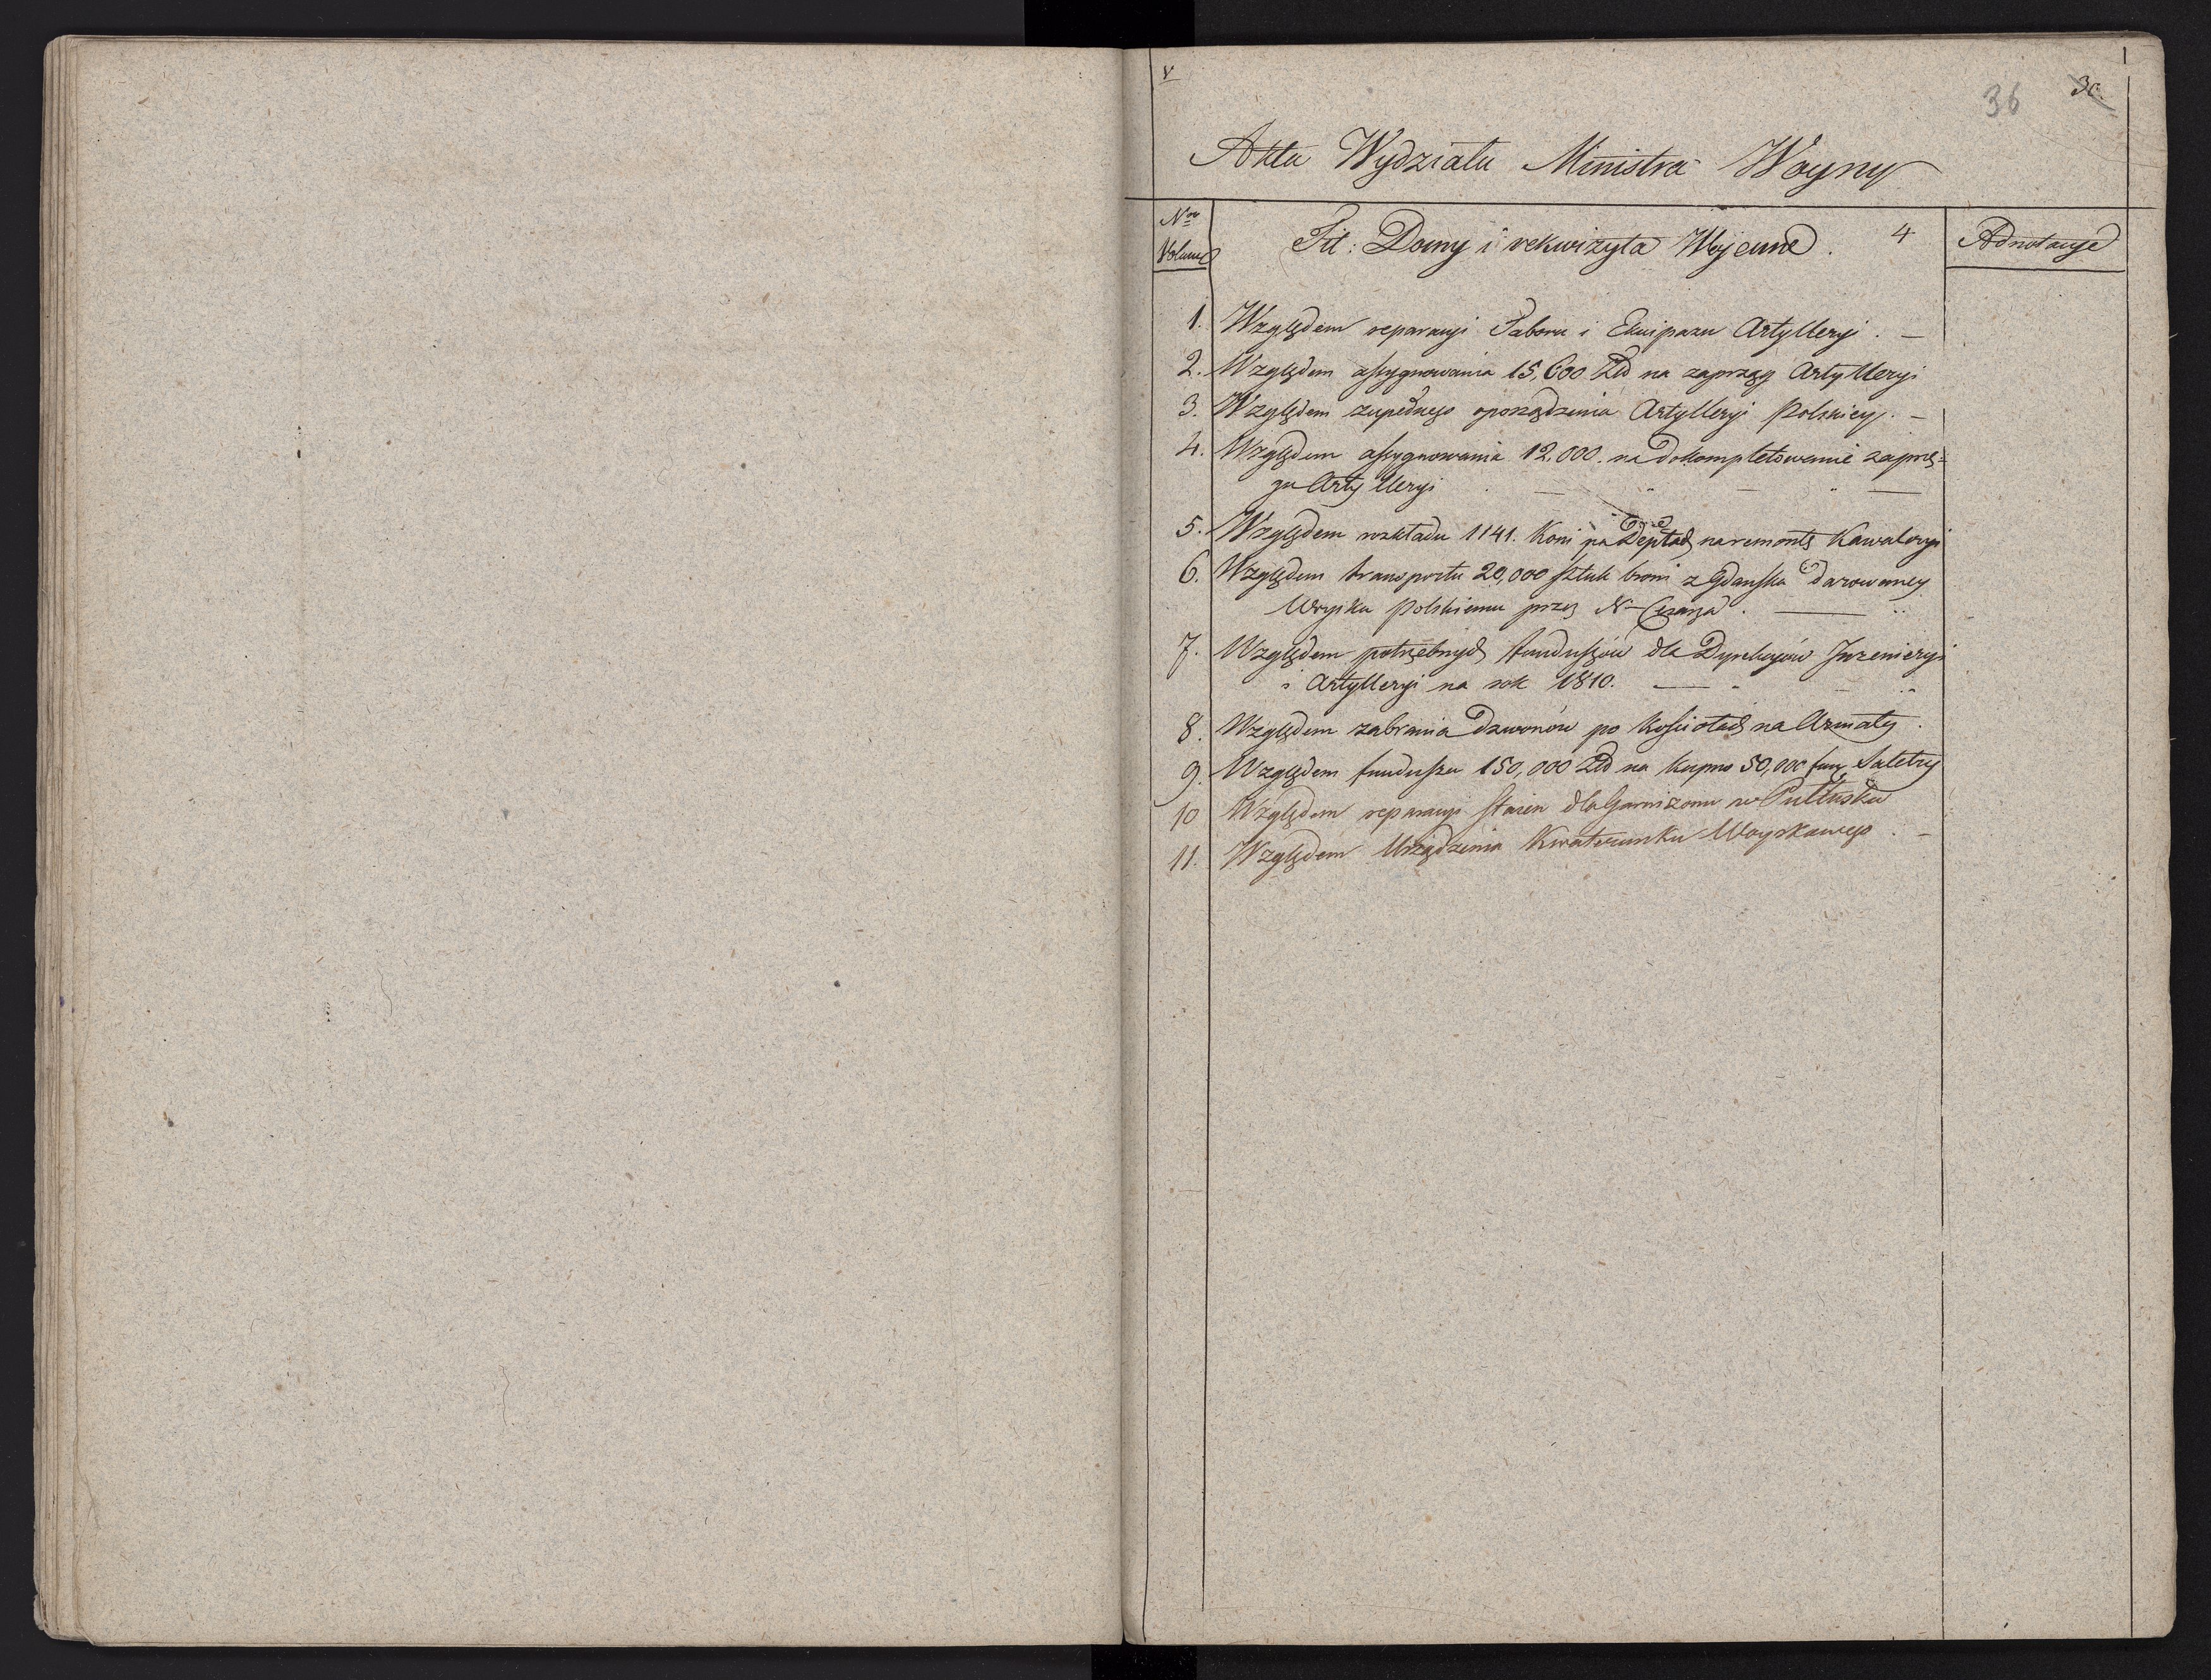 36 30.
Akta Wydziału Ministra Woyny
Nro Volume
Tit: Domy i rekwizyta Wojenne. 4
Adnotacye
1. Względem reparacyi Taboru i Ekwipazu Artylleryi. —
2. Względem assygnowania 15,600 Złł na zaprzęg Artylleryi
3. Względem zupełnego oporządzenia Artylleryi Polskiey. —
4. Względem assygnowania 12.000. na dokompletowanie zaprzę=
gu Artylleryi
5. Względem rozkładu 1141. Koni na Deptach na remontę Kawaleryi
6. Względem transportu 20,000 sztuk broni z Gdańska darowaney
Woysku Polskiemu przez N– Cesarza. —
7. Względem potrzebnych funduszów dla Dyrekcyów Inzenieryi
i Artylleryi na rok 1810. —
8. Względem zabrania Dzwonów po Kościołach na Armaty.
9. Względem funduszu 150,000 Złł na kupno 50,000 fun. Saletry
10 Względem reparacyi stajen dla Garnizonu w Pułtusku
11. Względem Urządzenia Kwaterunku Woyskowego. —